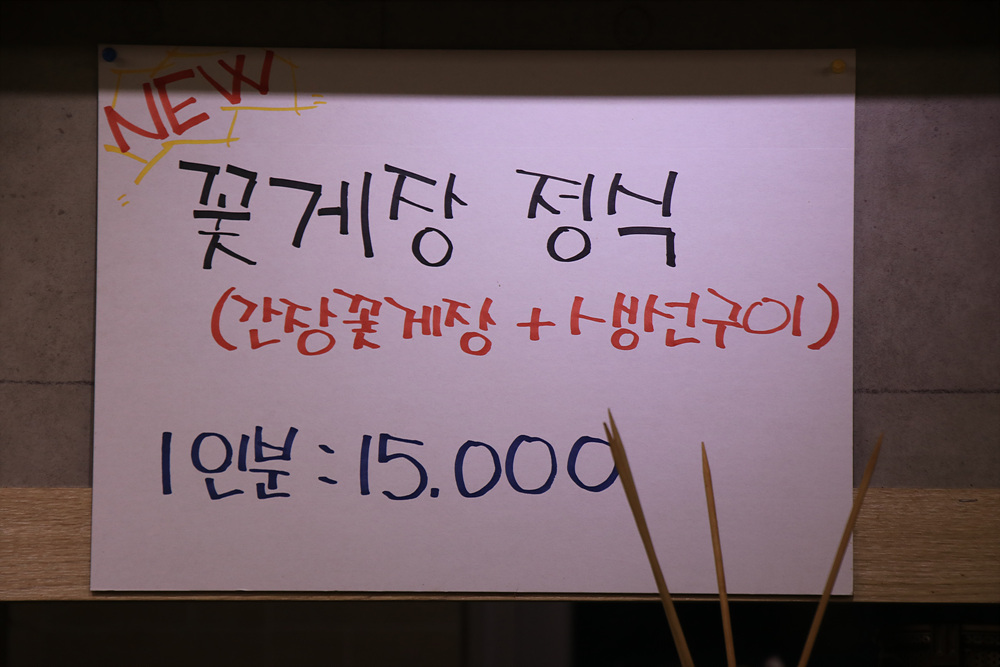 NEW
꽃게장 정식
(간장꽃게장 + 생선구이)
1인분 : 15.000